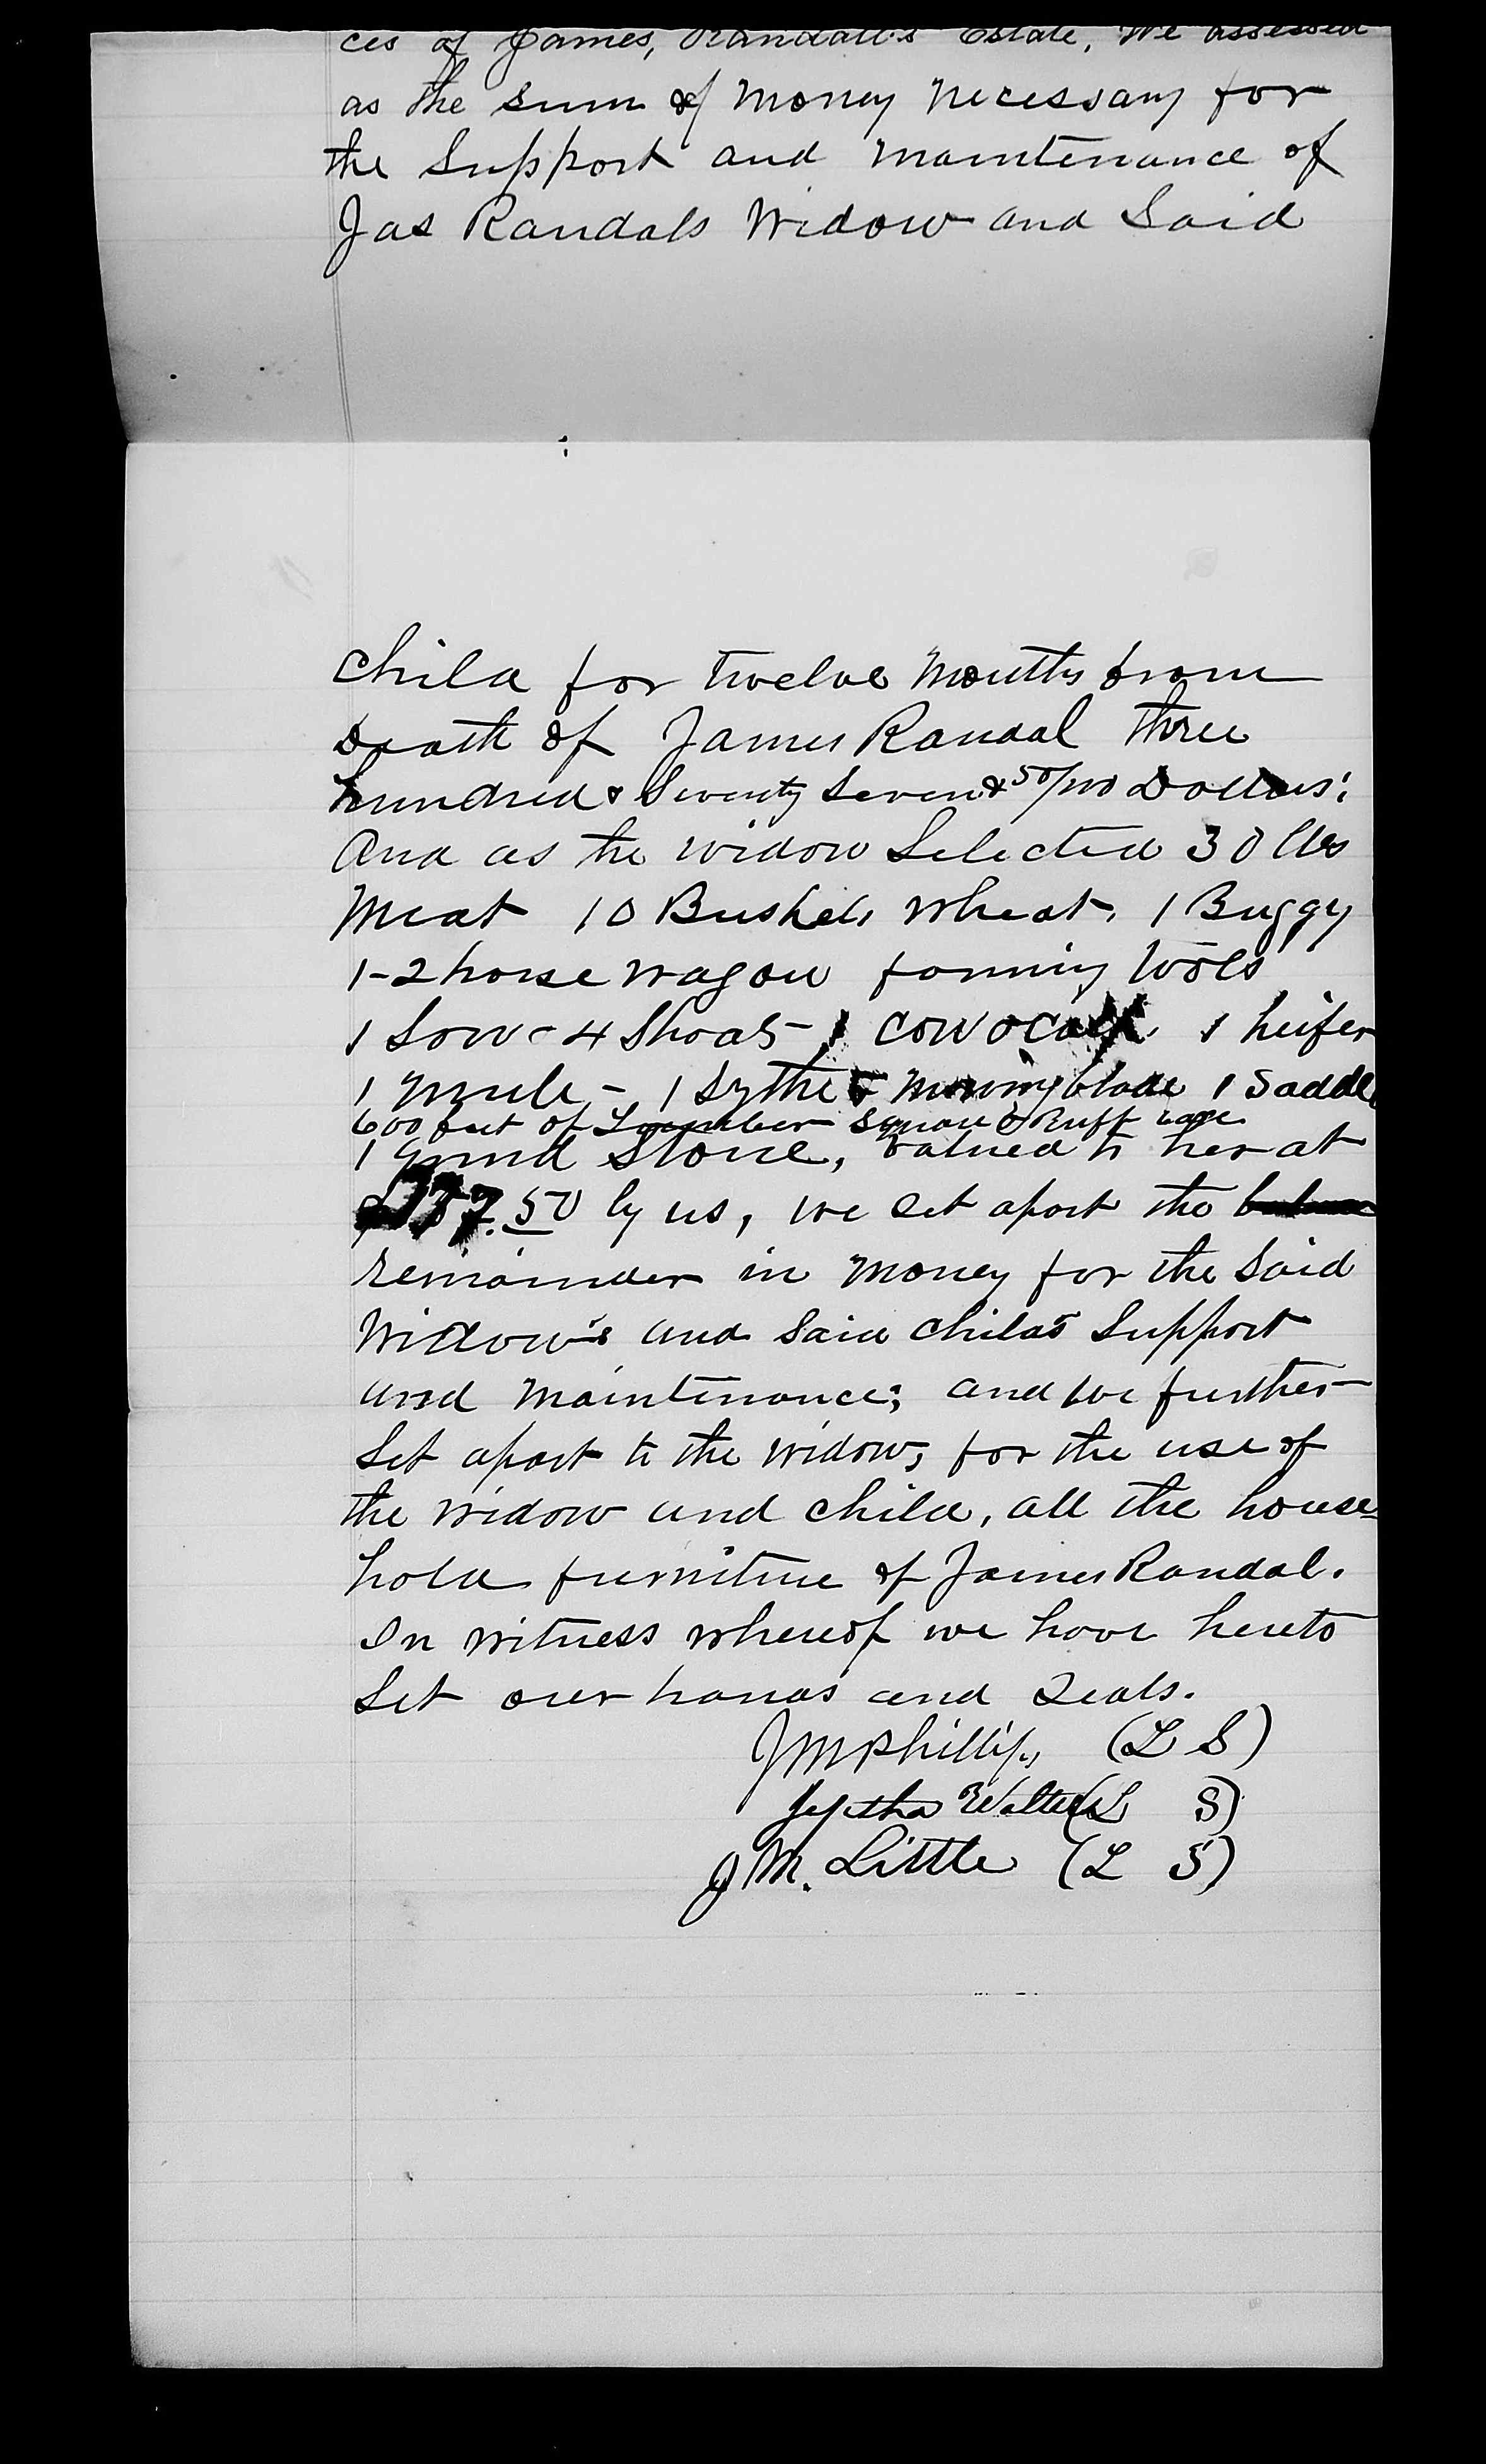 ces of James, Randall's Estate, We assessed
as the sum of money necessary for
the Support and maintenance of
Jas Randals Widow and Said
Child for twelve months from
Death of James Randal three
hundred & Seventy Seven & 50/100 Dollars;
And as the widow Selected 30 lbs
Meat 10 Bushels wheat, 1 Buggy
1-2 horse wagon farming tools
1 Sow - 4 Shoats - 1 cow & calf, 1 heifer
1 mule - 1 Sythe & mowing blade 1 Saddle
600 feet of Lumber Square & Ruff
1 grind stone, valued to her at
50 by us, we set apart the
remainder in money for the Said
Widow's and Said child's Support
and maintenance; and we further
Set apart to the widow, for the use of
the widow and child, all the house=
hold furniture of James Randal.
In witness whereof we have hereto
Set our hands and Seals.
J M Phillips (L S)
Jeptha Walters (L S)
J M. Little (L S)